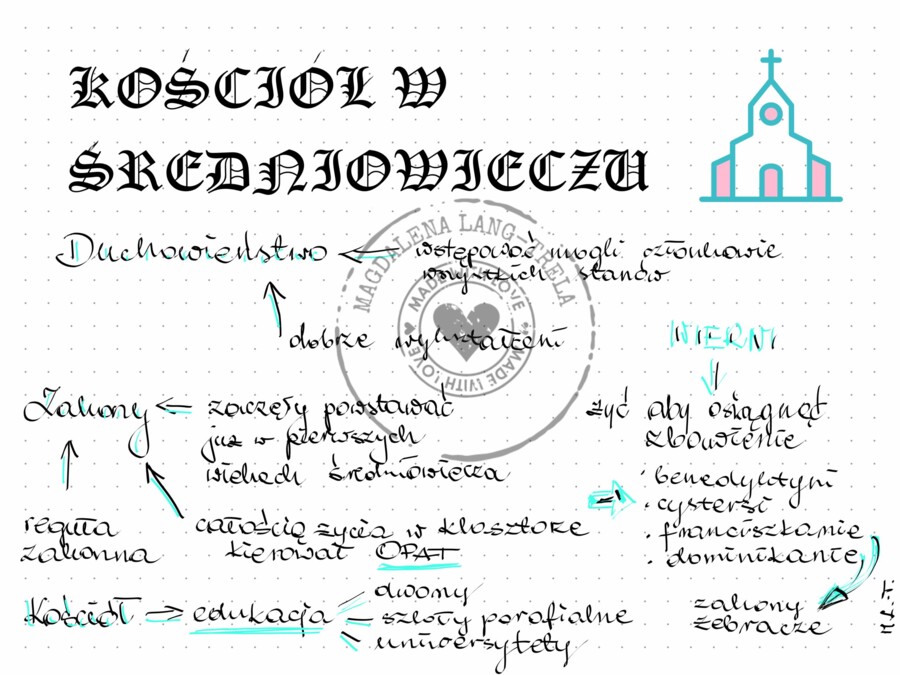 KOŚCIÓŁ W
ŚREDNIOWIECZU
Duchowieństwo ← wstępować mogli członkowie
wszystkich stanów
dobrze wykształceni
MAGDALENA LANG-TRELA
MADE WITH LOVE
MADE WITH LOVE
WIERNI
żyć aby osiągnąć
zbawienie
Zakony ← zaczęły powstawać
już w pierwszych
wiekach średniowiecza
· benedyktyni
· cystersi
· franciszkanie
· dominikanie
zakony
żebracze
reguła
zakonna
całością życia w klasztorze
kierował OPAT
Kościół → edukacja
dwory
szkoły parafialne
uniwersytety